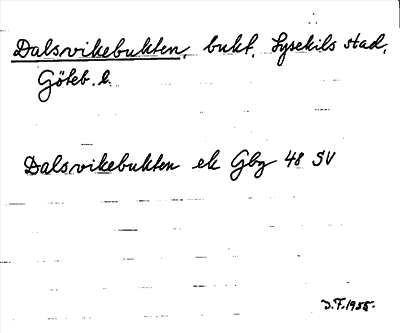 Dalsvikebukten, bukt, Lysekils stad,
Göteb. l.
Dalsvikebukten ek Gbg 48 SV
D.F. 1955.